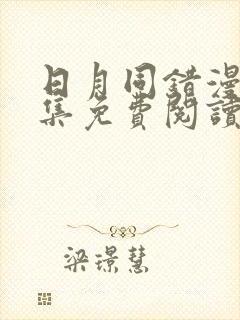 日月同錯漫
集免費閱讀
梁璟慧